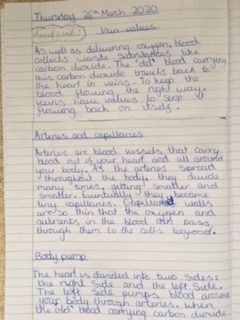 Thursday 26th March 2020
heart and :
Vein valves.
As well as delivering oxygen, blood
collects waste substances like
carbon dioxide. The "old" blood carrying
this carbon dioxide travels back to
the heart in veins. To keep the
blood flowing the right way,
veins have valves to stop it
flowing back on itself.
Arteries and capillaries
Arteries are blood vessels that carry
blood out of your heart and all around
your body. As the arteries spread
throughout the body, they divide
many times, getting smaller and
smaller. Eventually they become
tiny capillaries. Capillaries walls
are so thin that the oxygen and
nutrients in the blood can pass
through them to the cells beyond.
Body pump
The heart is divided into two sides:
the right side and the left side.
The left side pumps blood around
your body through arteries. When
the "old" blood carrying carbon dioxide